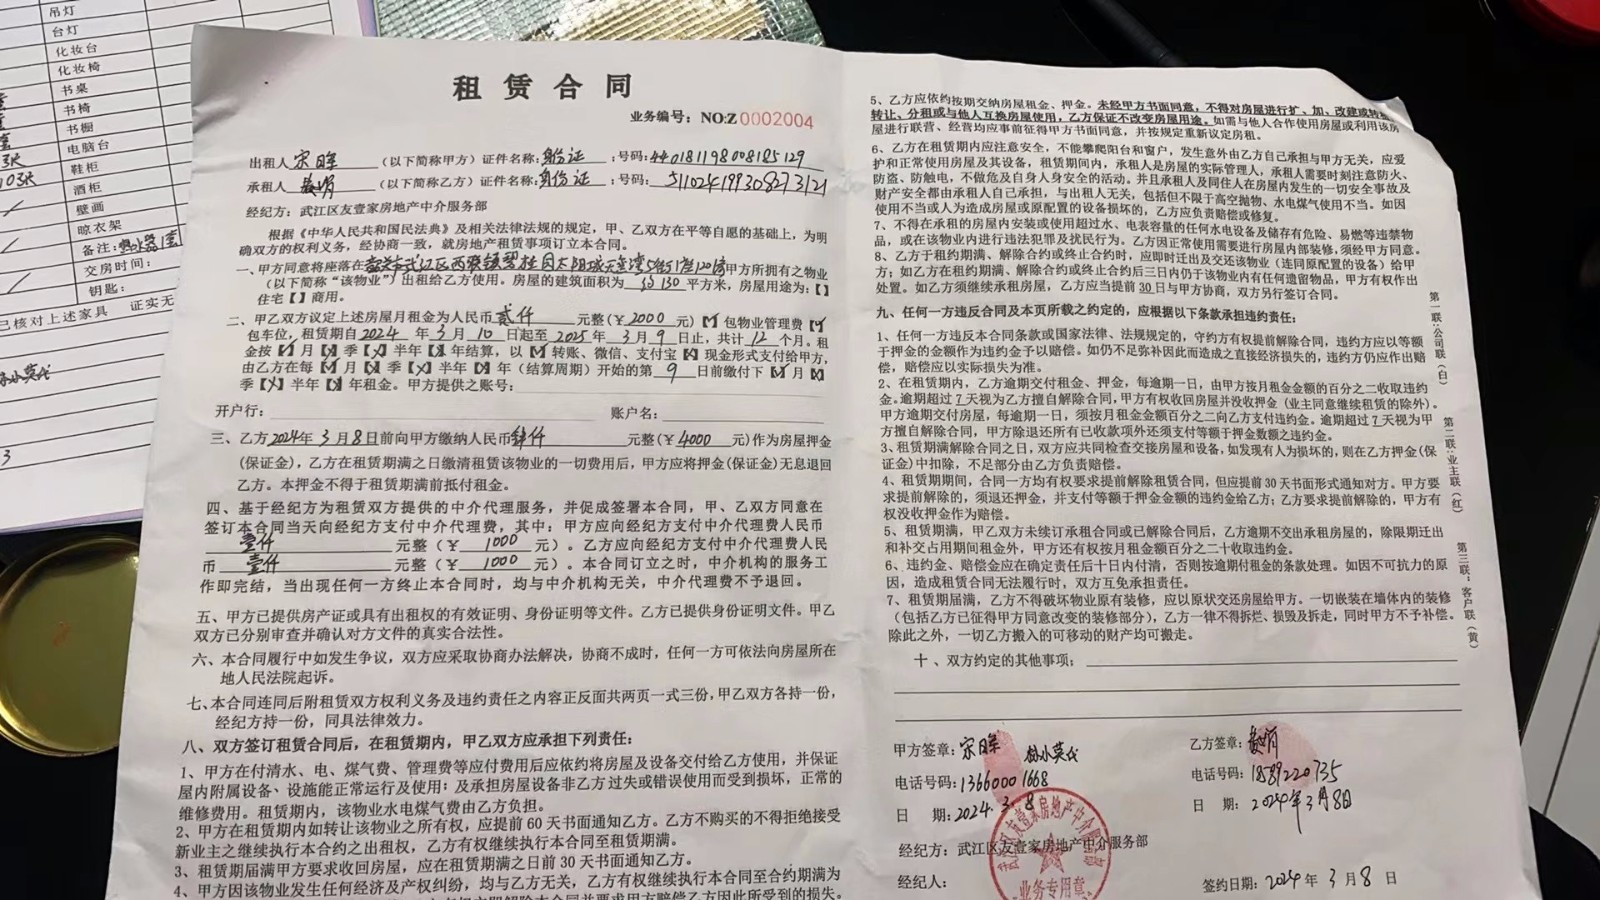 吊灯
台灯
化妆台
化妆椅
书桌
书椅
书橱
电脑台
鞋柜
酒柜
壁画
晾衣架
备注:
交房时间:
钥匙:
已核对上述家具 证实无
租赁合同
业务编号: NO:Z0002004
出租人 宋晖 (以下简称甲方) 证件名称: 身份证 ;号码: 440181198008185129
承租人 (以下简称乙方) 证件名称: 身份证 ;号码: 511024199308273121
经纪方: 武江区友壹家房地产中介服务部
根据《中华人民共和国民法典》及相关法律法规的规定, 甲、乙双方在平等自愿的基础上, 为明
确双方的权利义务, 经协商一致, 就房地产租赁事项订立本合同。
一、甲方同意将座落在 韶关市武江区西联镇碧桂园太阳城 甲方所拥有之物业
(以下简称“该物业”) 出租给乙方使用。房屋的建筑面积为 约130 平方米, 房屋用途为:【】
住宅【】商用。
二、甲乙双方议定上述房屋月租金为人民币 贰仟 元整(¥2000 元)【✓】包物业管理费【✓】
包车位, 租赁期自 2024 年 3 月 10 日起至 2025 年 3 月 9 日止, 共计 12 个月。租
金按【✓】月【×】季【×】半年【×】年结算, 以【✓】转账、微信、支付宝【×】现金形式支付给甲方,
由乙方在每【✓】月【×】季【×】半年【×】年(结算周期)开始的第 9 日前缴付下【✓】月【×】
季【×】半年【×】年租金。甲方提供之账号:
开户行: 账户名:
三、乙方 2024年 3 月 8 日前向甲方缴纳人民币 肆仟 元整(¥4000 元)作为房屋押金
(保证金), 乙方在租赁期满之日缴清租赁该物业的一切费用后, 甲方应将押金(保证金)无息退回
乙方。本押金不得于租赁期满前抵付租金。
四、基于经纪方为租赁双方提供的中介代理服务, 并促成签署本合同, 甲、乙双方同意在
签订本合同当天向经纪方支付中介代理费, 其中: 甲方应向经纪方支付中介代理费人民币
壹仟 元整(¥ 1000 元)。乙方应向经纪方支付中介代理费人民
币 壹仟 元整(¥ 1000 元)。本合同订立之时, 中介机构的服务工
作即完结, 当出现任何一方终止本合同时, 均与中介机构无关, 中介代理费不予退回。
五、甲方已提供房产证或具有出租权的有效证明、身份证明等文件。乙方已提供身份证明文件。甲乙
双方已分别审查并确认对方文件的真实合法性。
六、本合同履行中如发生争议, 双方应采取协商办法解决, 协商不成时, 任何一方可依法向房屋所在
地人民法院起诉。
七、本合同连同后附租赁双方权利义务及违约责任之内容正反面共两页一式三份, 甲乙双方各持一份,
经纪方持一份, 同具法律效力。
八、双方签订租赁合同后, 在租赁期内, 甲乙双方应承担下列责任:
1、甲方在付清水、电、煤气费、管理费等应付费用后应依约将房屋及设备交付给乙方使用, 并保证
屋内附属设备、设施能正常运行及使用; 及承担房屋设备非乙方过失或错误使用而受到损坏, 正常的
维修费用。租赁期内, 该物业水电煤气费由乙方负担。
2、甲方在租赁期内如转让该物业之所有权, 应提前 60 天书面通知乙方。乙方不购买的不得拒绝接受
新业主之继续执行本合约之出租权, 乙方有权继续执行本合同至租赁期满。
3、租赁期届满甲方要求收回房屋, 应在租赁期满之日前 30 天书面通知乙方。
4、甲方因该物业发生任何经济及产权纠纷, 均与乙方无关, 乙方有权继续执行本合同至合约期满为
5、乙方应依约按期交纳房屋租金、押金。未经甲方书面同意, 不得对房屋进行扩、加、改建或转租
转让、分租或与他人互换房屋使用, 乙方保证不改变房屋用途。如需与他人合作使用房屋或利用该房
屋进行联营、经营均应事前征得甲方书面同意, 并按规定重新议定房租。
6、乙方在租赁期内应注意安全, 不能攀爬阳台和窗户, 发生意外由乙方自己承担与甲方无关, 应爱
护和正常使用房屋及其设备, 租赁期间内, 承租人是房屋的实际管理人, 承租人需要时刻注意防火、
防盗、防触电, 不做危及自身人身安全的活动。并且承租人及同住人在房屋内发生的一切安全事故及
财产安全都由承租人自己承担, 与出租人无关, 包括但不限于高空抛物、水电煤气使用不当。如因
使用不当或人为造成房屋或原配置的设备损坏的, 乙方应负责赔偿或修复。
7、不得在承租的房屋内安装或使用超过水、电表容量的任何水电设备及储存有危险、易燃等违禁物
品, 或在该物业内进行违法犯罪及扰民行为。乙方因正常使用需进行房屋内部装修, 须经甲方同意。
8、乙方于租约期满、解除合约或终止合约时, 应即时迁出及交还该物业 (连同原配置的设备) 给甲
方; 如乙方在租约期满、解除合约或终止合约后三日内仍于该物业内有任何遗留物品, 甲方有权作出
处置。如乙方须继续承租房屋, 乙方应当提前 30 日与甲方协商, 双方另行签订合同。
九、任何一方违反合同及本页所载之约定的, 应根据以下条款承担违约责任:
1、任何一方违反本合同条款或国家法律、法规规定的, 守约方有权提前解除合同, 违约方应以等额
于押金的金额作为违约金予以赔偿。如仍不足弥补因此而造成之直接经济损失的, 违约方仍应作出赔
偿, 赔偿应以实际损失为准。
2、在租赁期内, 乙方逾期交付租金、押金, 每逾期一日, 由甲方按月租金金额的百分之二收取违约
金。逾期超过 7 天视为乙方擅自解除合同, 甲方有权收回房屋并没收押金 (业主同意继续租赁的除外)。
甲方逾期交付房屋, 每逾期一日, 须按月租金金额百分之二向乙方支付违约金。逾期超过 7 天视为甲
方擅自解除合同, 甲方除退还所有已收款项外还须支付等额于押金数额之违约金。
3、租赁期满解除合同之日, 双方应共同检查交接房屋和设备, 如发现有人为损坏的, 则在乙方押金(保
证金) 中扣除, 不足部分由乙方负责赔偿。
4、租赁期期间, 合同一方均有权要求提前解除租赁合同, 但应提前 30 天书面形式通知对方。甲方要
求提前解除的, 须退还押金, 并支付等额于押金金额的违约金给乙方; 乙方要求提前解除的, 甲方有
权没收押金作为赔偿。
5、租赁期满, 甲甲乙双方未续订承租合同或已解除合同后, 乙方逾期不交出承租房屋的, 除限期迁出
和补交占用期间租金外, 甲方还有权按月租金额百分之二十收取违约金。
6、违约金、赔偿金应在确定责任后十日内付清, 否则按逾期付租金的条款处理。如因不可抗力的原
因, 造成租赁合同无法履行时, 双方互免承担责任。
7、租赁期届满, 乙方不得破坏物业原有装修, 应以原状交还房屋给甲方。一切嵌装在墙体内的装修
(包括乙方已征得甲方同意改变的装修部分), 乙方一律不得拆烂、损毁及拆走, 同时甲方不予补偿。
除此之外, 一切乙方搬入的可移动的财产均可搬走。
十、双方约定的其他事项:
甲方签章: 宋晖
电话号码: 13660001668
日 期: 2024.3.8
经纪方: 武江区友壹家房地产中介服务部
经纪人:
乙方签章:
电话号码: 1859220735
日 期: 2024年3月8日
签约日期: 2024 年 3 月 8 日
业务专用章
第一联:公司联(白)
第二联:业主联(红)
第三联:客户联(黄)